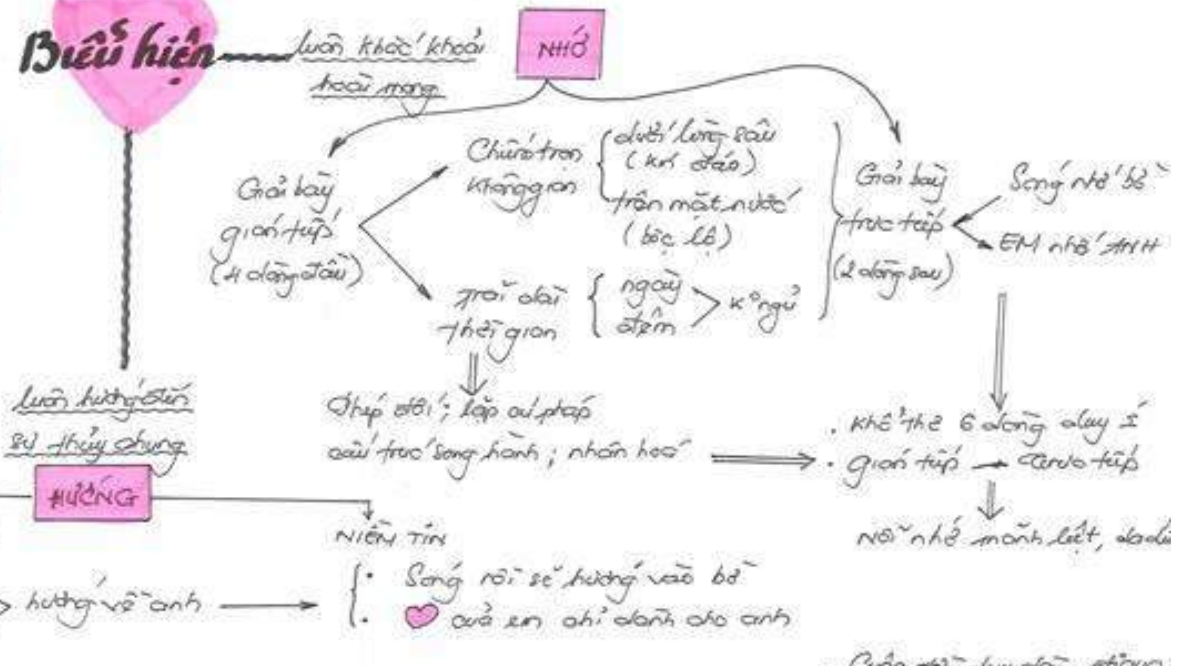 Biểu hiện
luôn khắc khoải
hoài mong
NHỚ
Giãi bày
gián tiếp
(4 dòng đầu)
Chứa trong
không gian
dưới lòng sâu
(kín đáo)
trên mặt nước
(bộc lộ)
Trải dài
thời gian
ngày
đêm
K° ngủ
Giãi bày
trực tiếp
(2 dòng sau)
Sóng nhớ bờ
EM nhớ ANH
luôn hướng đến
sự thủy chung
HƯỚNG
Phép đối; lặp cú pháp
cấu trúc song hành; nhân hoá
. Khổ thơ 6 dòng duy I
. gián tiếp → trực tiếp
Nỗi nhớ mãnh liệt,
hướng về anh
NIỀM TIN
Sóng rồi sẽ hướng vào bờ
của em chỉ dành cho anh